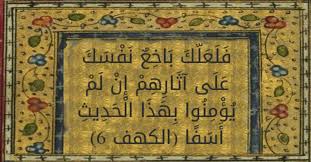 فَلَعَلَّكَ بَاخِعٌ نَفْسَكَ
عَلَى آثَارِهِمْ إِنْ لَمْ
يُؤْمِنُوا بِهَذَا الْحَدِيثِ
أَسَفًا (الكهف 6)